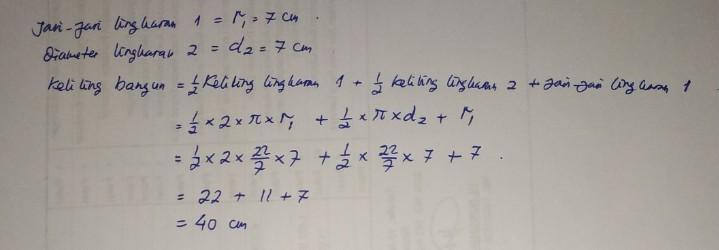 Jari-jari lingkaran 1 = r₁ = 7 cm.
Diameter lingkaran 2 = d₂ = 7 cm
Keliling bangun = ½ Keliling lingkaran 1 + ½ keliling lingkaran 2 + jari-jari lingkaran 1
= ½ × 2 × π × r₁ + ½ × π × d₂ + r₁
= ½ × 2 × 22/7 × 7 + ½ × 22/7 × 7 + 7.
= 22 + 11 + 7
= 40 cm